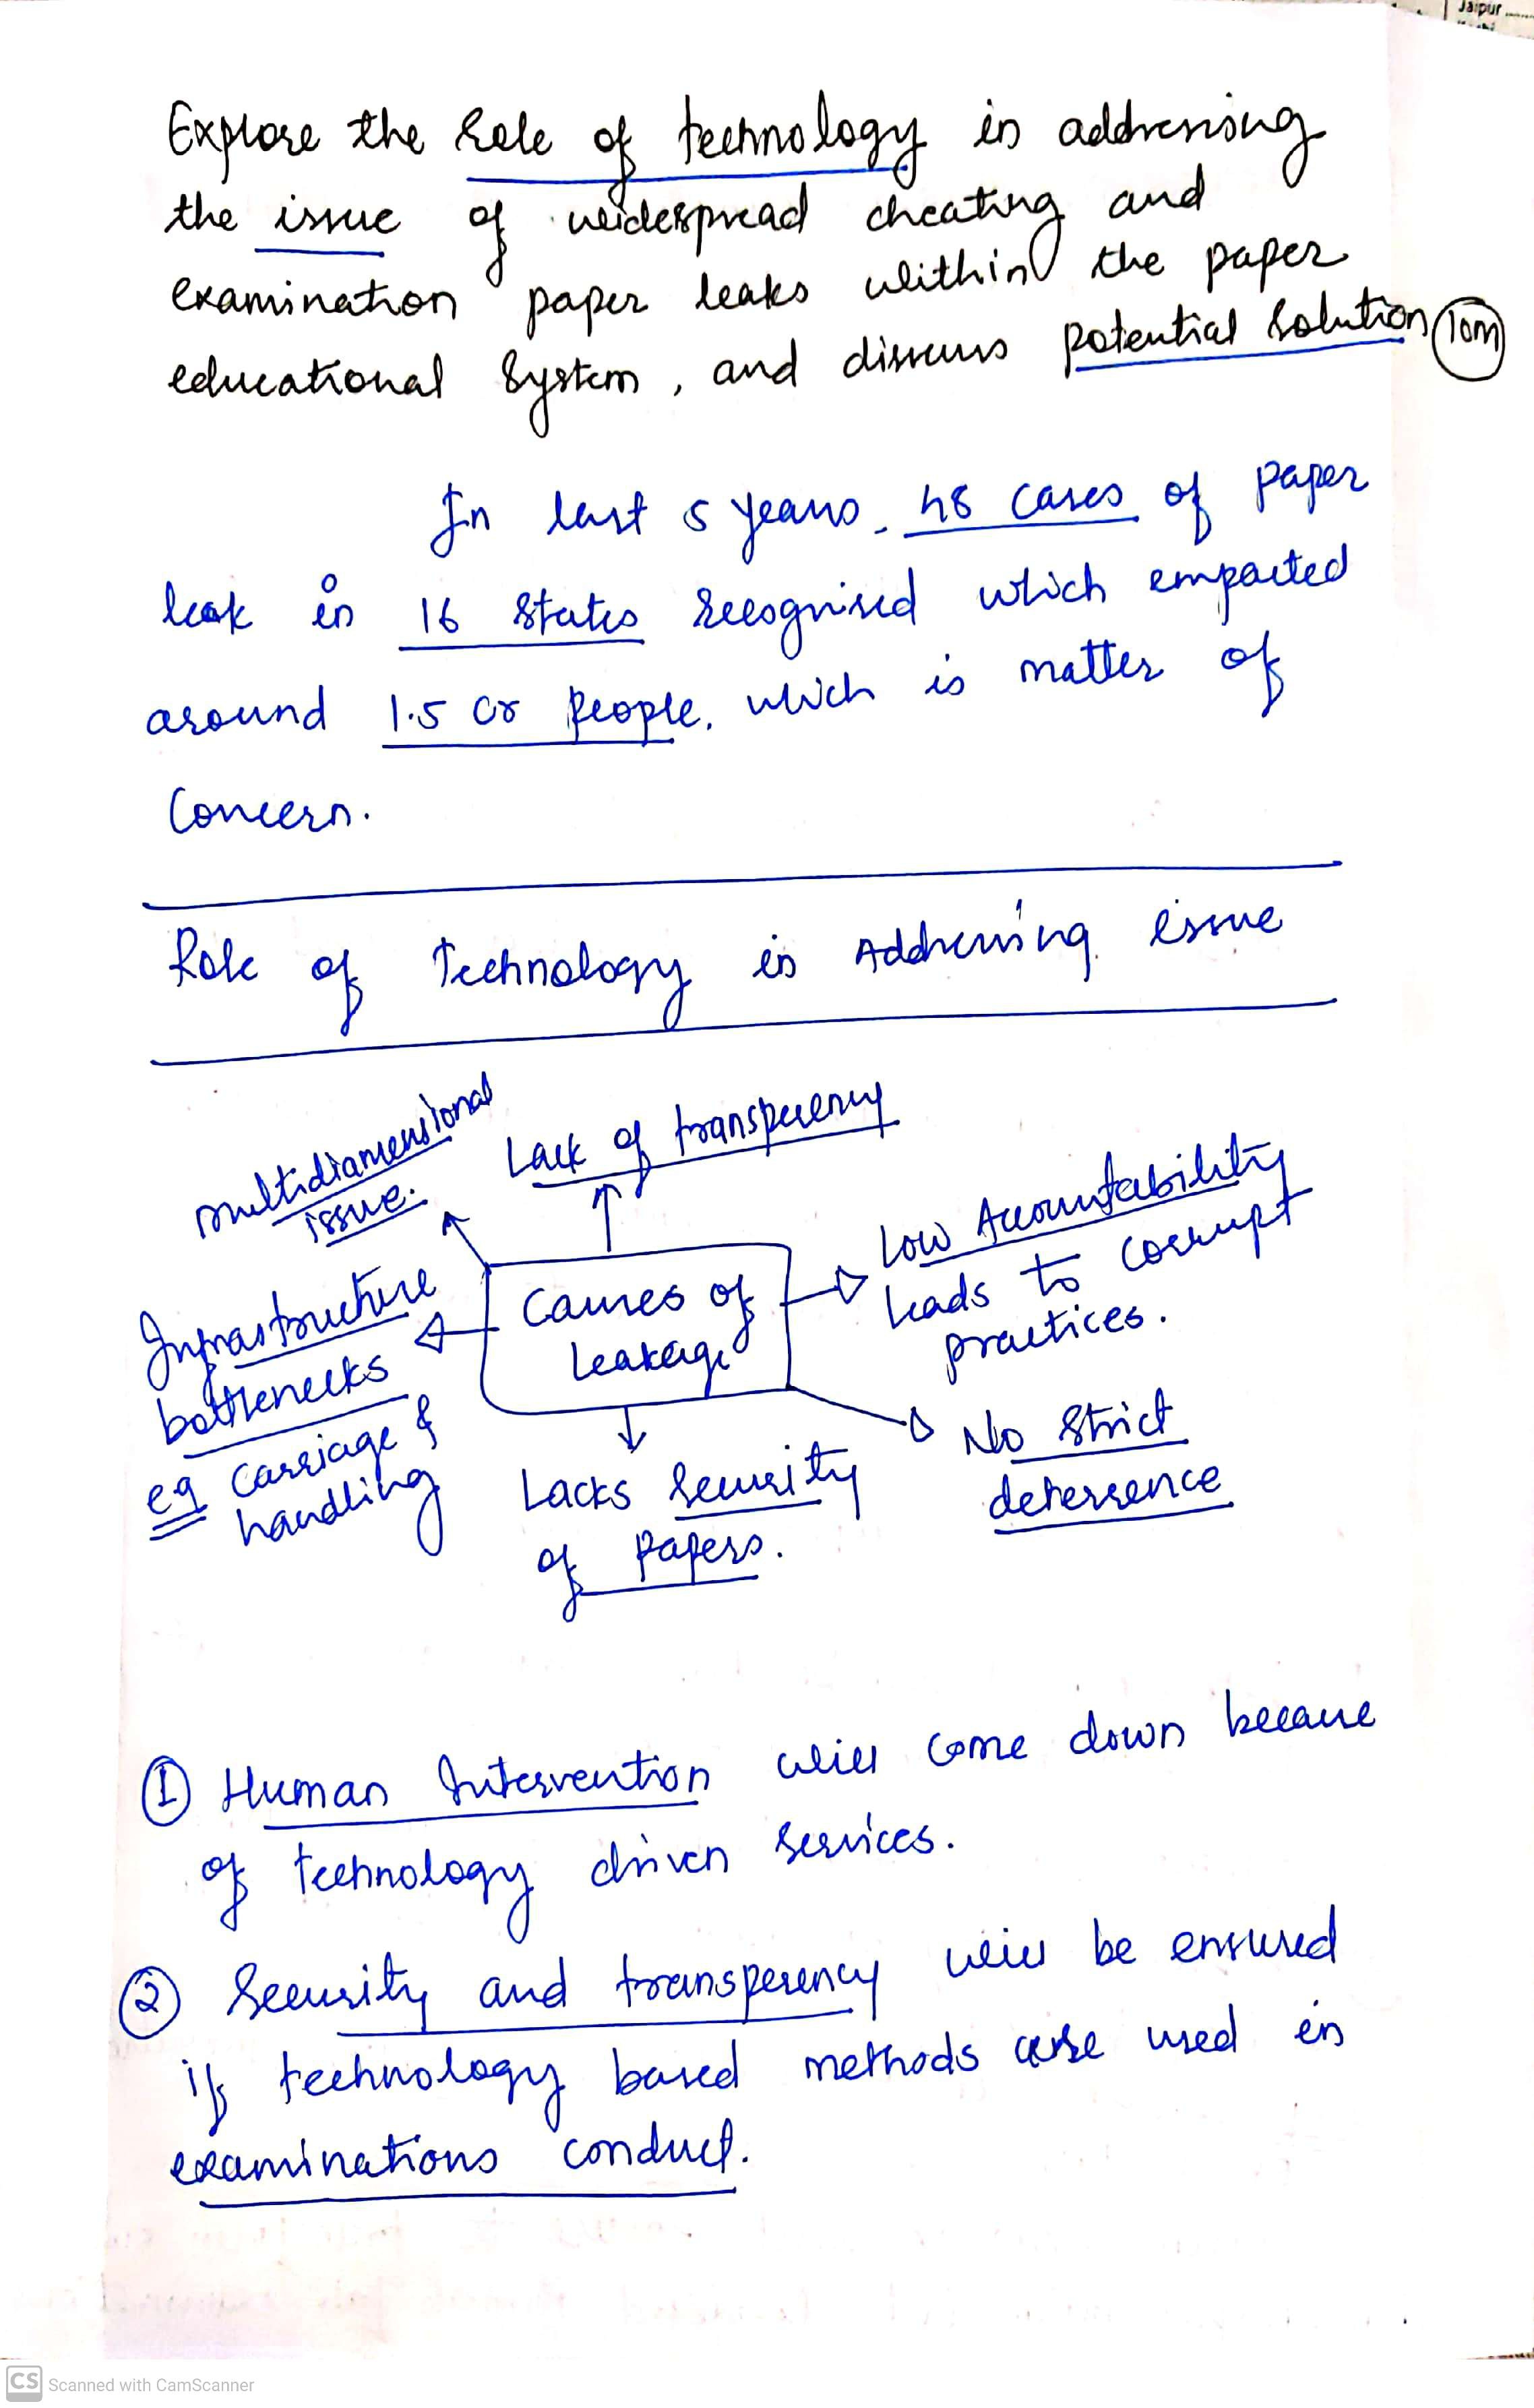 Jaipur
Explore the Role of technology in addressing
the issue of widespread cheating and
examination paper leaks within the paper
educational System, and discuss potential Solution 10m
In last 5 years, 48 cases of paper
leak in 16 States recognised which empacted
around 1.5 cr people, which is matter of
Concern.
Role of Technology in Addressing issue
multidiamensional
issue.
Lack of transperency
Low Accountability
leads to corrupt
practices.
Causes of
leakage
Infrastructure
bottlenecks
eg carriage &
handling
Lacks Security
of Papers.
No Strict
deterrence
① Human Intervention will come down because
of technology driven services.
② Security and transperency will be ensured
if technology based methods are used in
examinations conduct.
CS Scanned with CamScanner